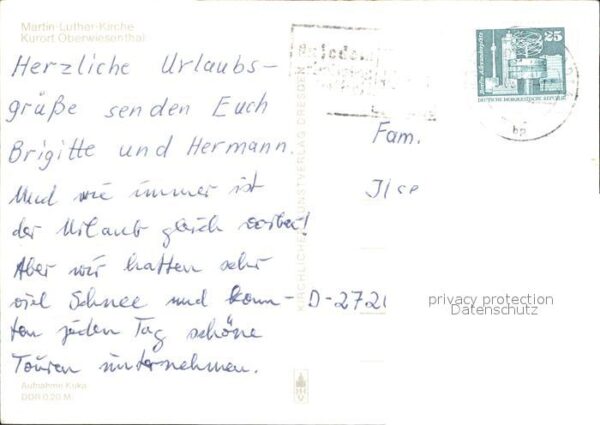 Martin-Luther-Kirche
Kurort Oberwiesenthal
Herzliche Urlaubs-
grüße senden Euch
Brigitte und Hermann.
Und wie immer ist
der Urlaub gleich vorbei!
Aber wir hatten sehr
viel Schnee und konn-
ten jeden Tag schöne
Touren unternehmen.
Aufnahme Kuka
DDR 0,20 M
KIRCHLICHER KUNSTVERLAG DRESDEN
25
Berlin, Alexanderplatz
DEUTSCHE DEMOKRATISCHE REPUBLIK
bp
Fam.
Ilse
D-272
privacy protection
Datenschutz